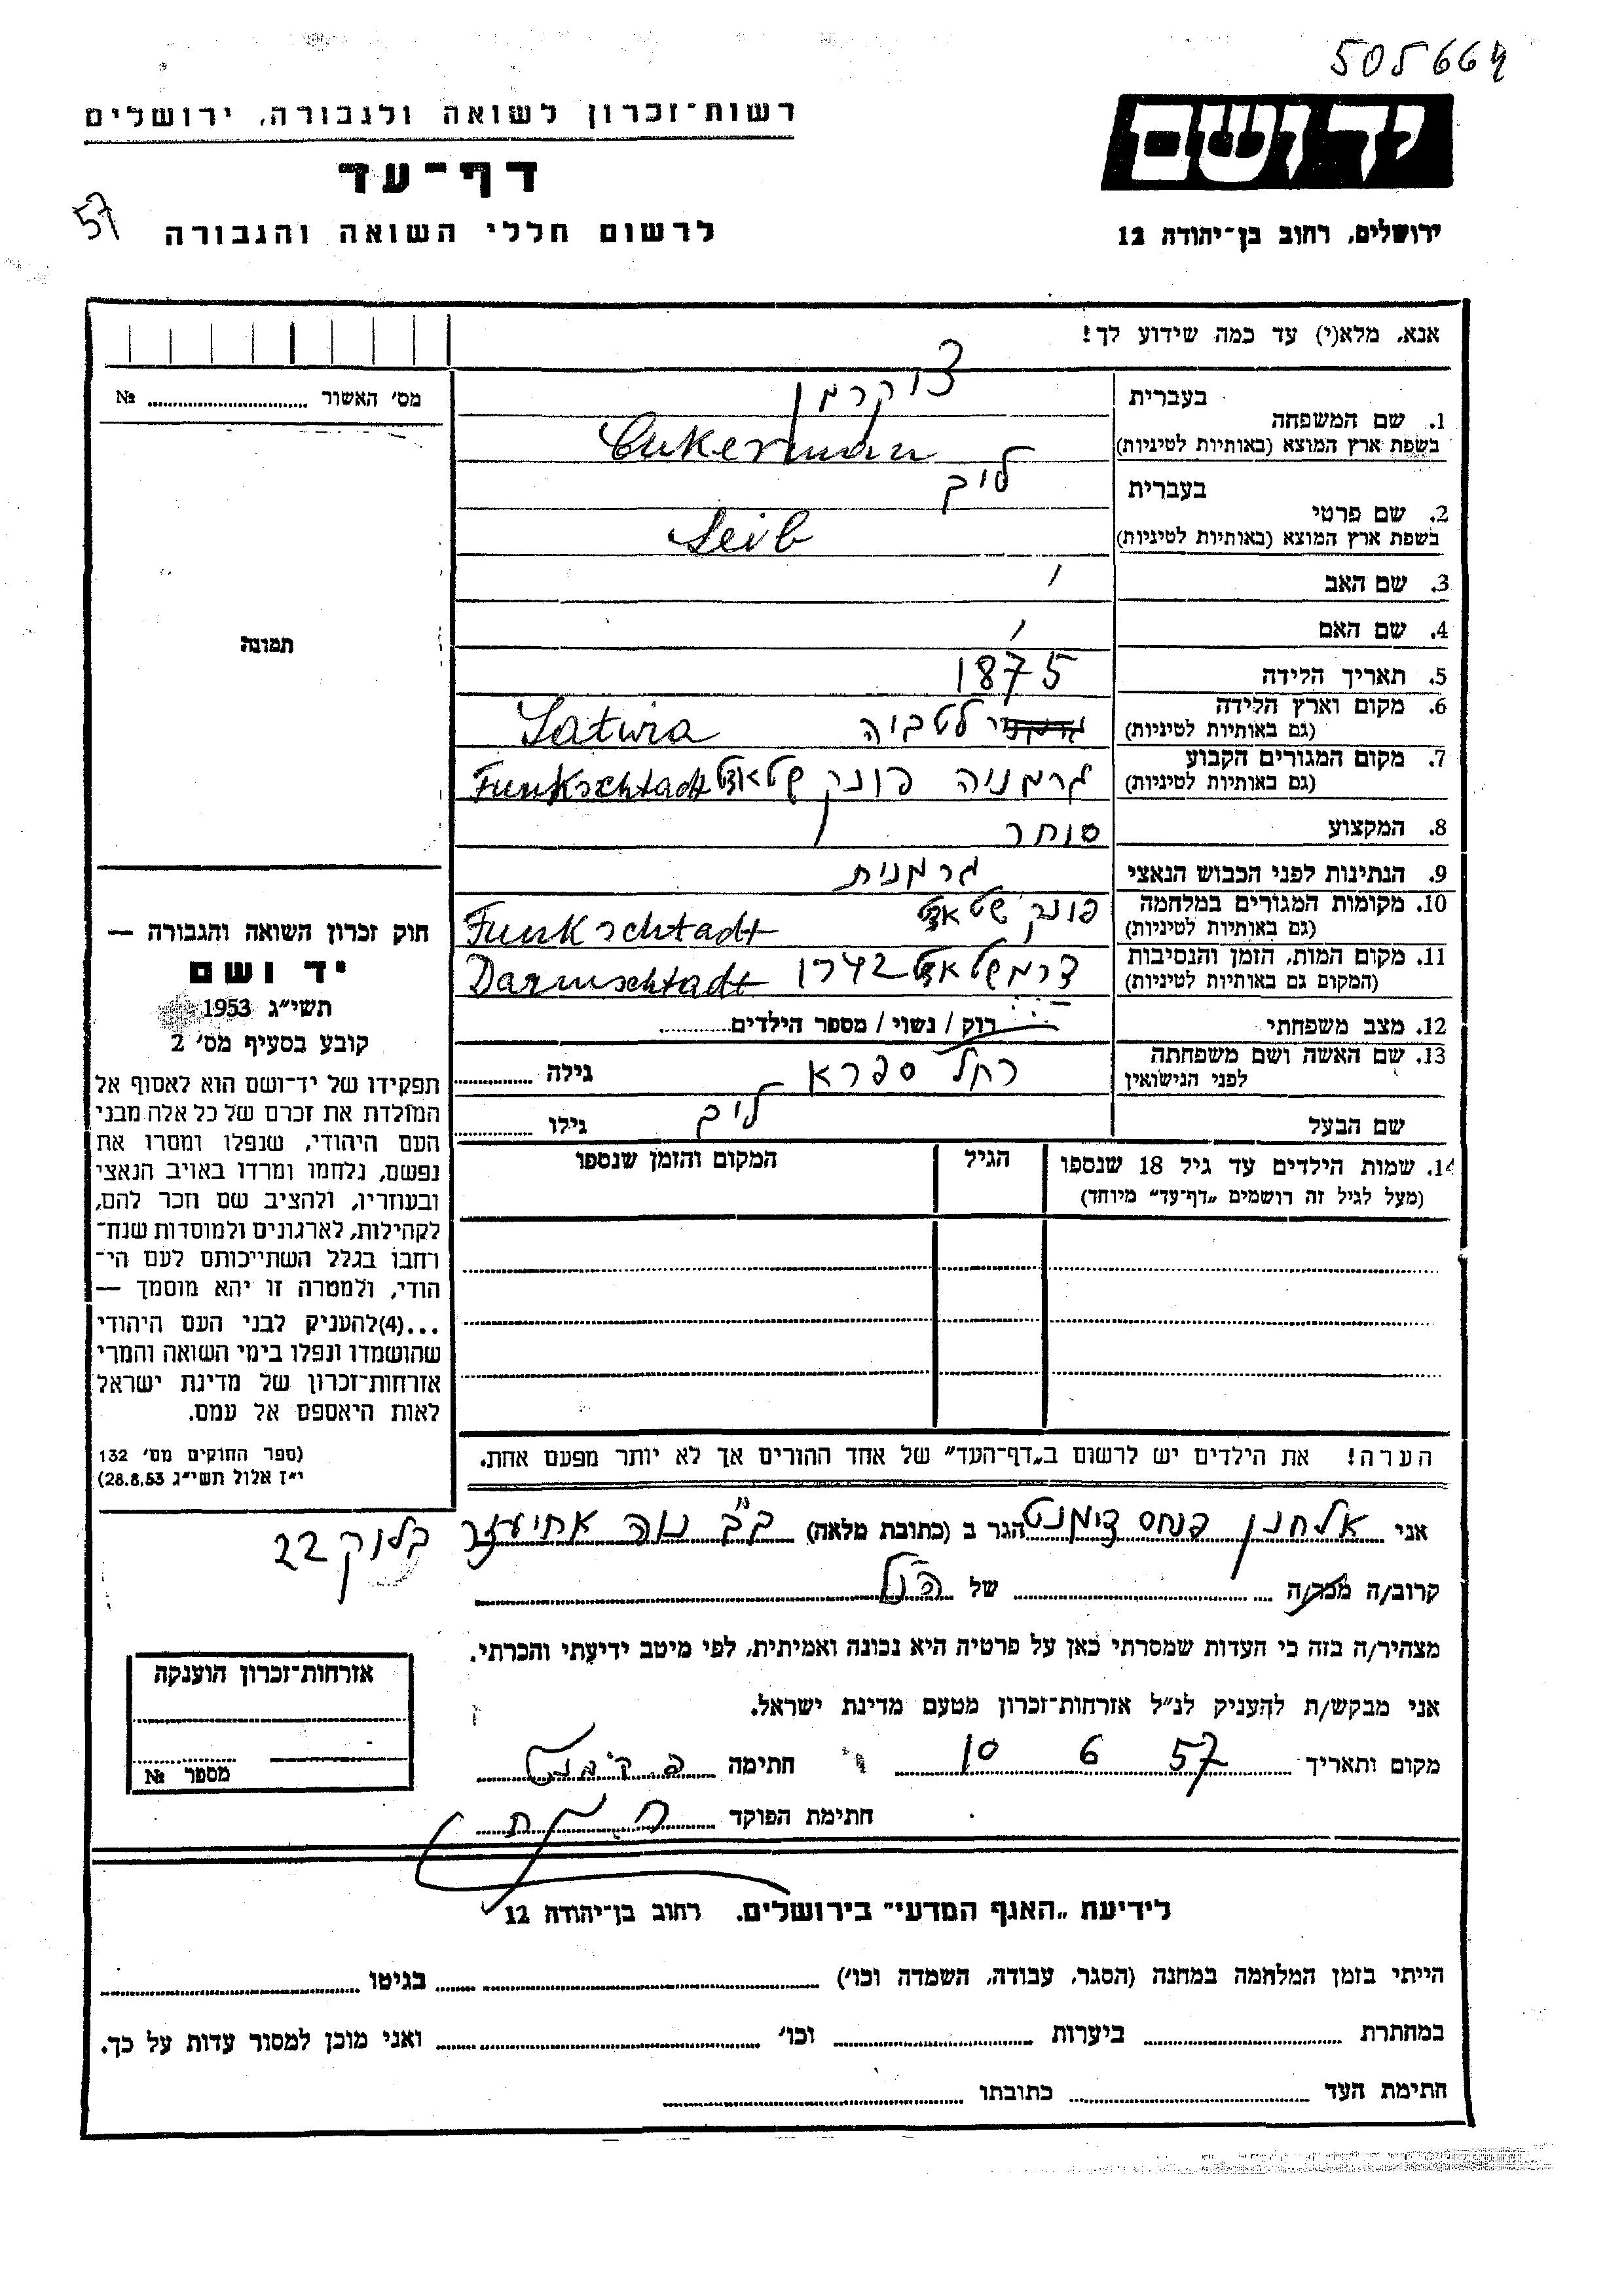 505664
רשות־זכרון לשואה ולגבורה, ירושלים
ידושם
דף־עד
57
לרשום חללי השואה והגבורה
ירושלים, רחוב בן־יהודה 12
אנא, מלא(י) עד כמה שידוע לך!
מס׳ האשור № 
1. שם המשפחה
בעברית צוקרמן
בשפת ארץ המוצא (באותיות לטיניות) Cukerman
2. שם פרטי
בעברית לייב
בשפת ארץ המוצא (באותיות לטיניות) Leib
3. שם האב
4. שם האם
תמונה
5. תאריך הלידה 1875
6. מקום וארץ הלידה
(גם באותיות לטיניות) לטביה Latwia
7. מקום המגורים הקבוע
(גם באותיות לטיניות) גרמניה פונקשטאדט Funkschtadt
8. המקצוע סוחר
9. הנתינות לפני הכבוש הנאצי גרמנית
10. מקומות המגורים במלחמה
(גם באותיות לטיניות) פונקשטאדט Funkschtadt
11. מקום המות, הזמן והנסיבות
(המקום גם באותיות לטיניות) דרמשטאדט 1942 Darmschtadt
12. מצב משפחתי רוק / נשוי / מספר הילדים
13. שם האשה ושם משפחתה
לפני הנישואין רחל ספרא גילה
שם הבעל לייב גילו
14. שמות הילדים עד גיל 18 שנספו הגיל המקום והזמן שנספו
(מעל לגיל זה רושמים „דף־עד” מיוחד)
חוק זכרון השואה והגבורה —
יד ושם
תשי״ג 1953
קובע בסעיף מס׳ 2
תפקידו של יד־ושם הוא לאסוף אל
המולדת את זכרם של כל אלה מבני
העם היהודי, שנפלו ומסרו את
נפשם, נלחמו ומרדו באויב הנאצי
ובעוזריו, ולהציב שם וזכר להם,
לקהילות, לארגונים ולמוסדות שנח־
רחבו בגלל השתייכותם לעם הי־
הודי, ולמטרה זו יהא מוסמך —
...(4) להעניק לבני העם היהודי
שהושמדו ונפלו בימי השואה והמרי
אזרחות־זכרון של מדינת ישראל
לאות היאספם אל עמם.
(ספר החוקים מס׳ 132
י״ז אלול תשי״ג 28.8.53)
הערה! את הילדים יש לרשום ב„דף־העד” של אחד ההורים אך לא יותר מפעם אחת.
אני אלחנן פנחס דימנט הגר ב (כתובת מלאה) ב״ב נוה אחיעזר בלוק 22
קרוב/ה מכר/ה של הנ״ל
מצהיר/ה בזה כי העדות שמסרתי כאן על פרטיה היא נכונה ואמיתית, לפי מיטב ידיעתי והכרתי.
אני מבקש/ת להעניק לנ״ל אזרחות־זכרון מטעם מדינת ישראל.
מקום ותאריך 10 6 57 חתימה
חתימת הפוקד
אזרחות־זכרון הוענקה
מספר №
לידיעת „האגף המדעי” בירושלים, רחוב בן־יהודה 12
הייתי בזמן המלחמה במחנה (הסגר, עבודה, השמדה וכו׳) בגיטו
במחתרת ביערות וכו׳ ואני מוכן למסור עדות על כך.
חתימת העד כתובתו